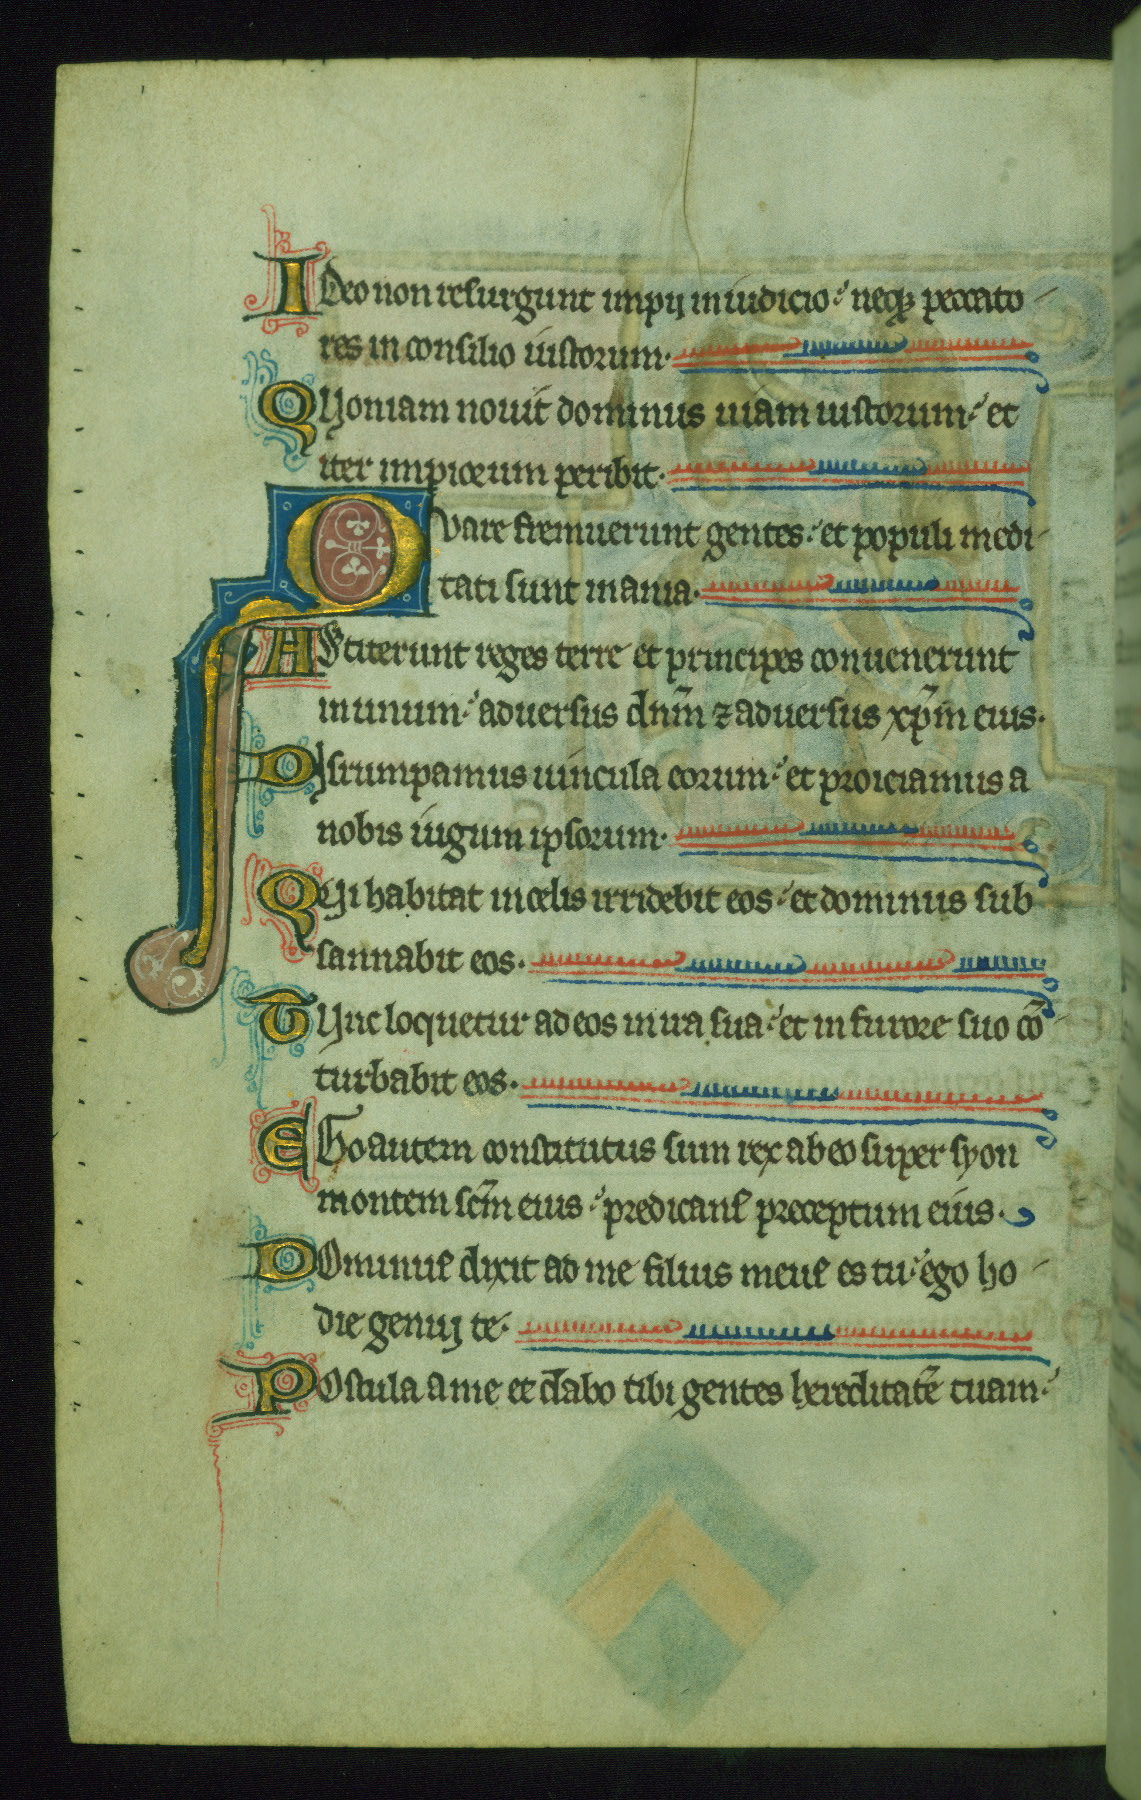 Ideo non resurgunt impij in iudicio neqȝ peccato
res in consilio iustorum.
Quoniam nouit dominus uiam iustorum et
iter impiorum peribit.
Quare fremuerunt gentes et populi medi
tati sunt inania.
Astiterunt reges terre et principes conuenerunt
in unum aduersus dnm̄ ⁊ aduersus xp̄m eius.
Disrumpamus uincula eorum et proiciamus a
nobis iugum ipsorum.
Qui habitat in celis irridebit eos et dominus sub
sannabit eos.
Tunc loquetur ad eos in ira sua et in furore suo cō
turbabit eos.
Ego autem constitutus sum rex ab eo super syon
montem scm̄ eius predicans preceptum eius.
Dominus dixit ad me filius meus es tu ego ho
die genuj te.
Postula a me et dabo tibi gentes hereditatē tuam